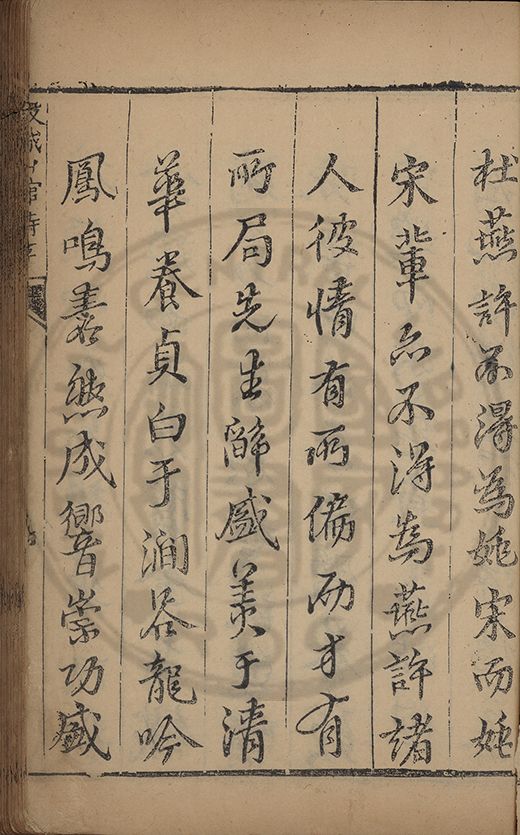 杜燕許不得為姚宋而姚
宋輩亦不得為燕許諸
人彼情有所偏而才有
所局先生辭盛羡于清
華養貞白于澗谷龍吟
鳳鳴書然成響崇功盛